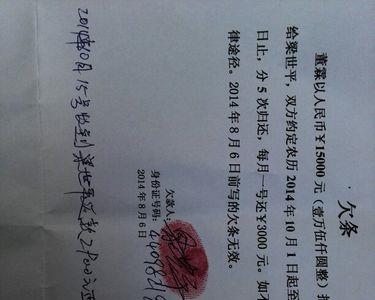 · 欠条
董霖以人民币￥15000 元（壹万伍仟圆整）
给梁世平，双方约定农历 2014 年 10 月 1 日起至
日止，分 5 次归还，每月一号还￥3000 元。如不
律途径。2014 年 8 月 6 日前写的欠条无效。
欠款人：
身份证号码：
2014 年 8 月 6 日
2014年10月15号收到梁世平